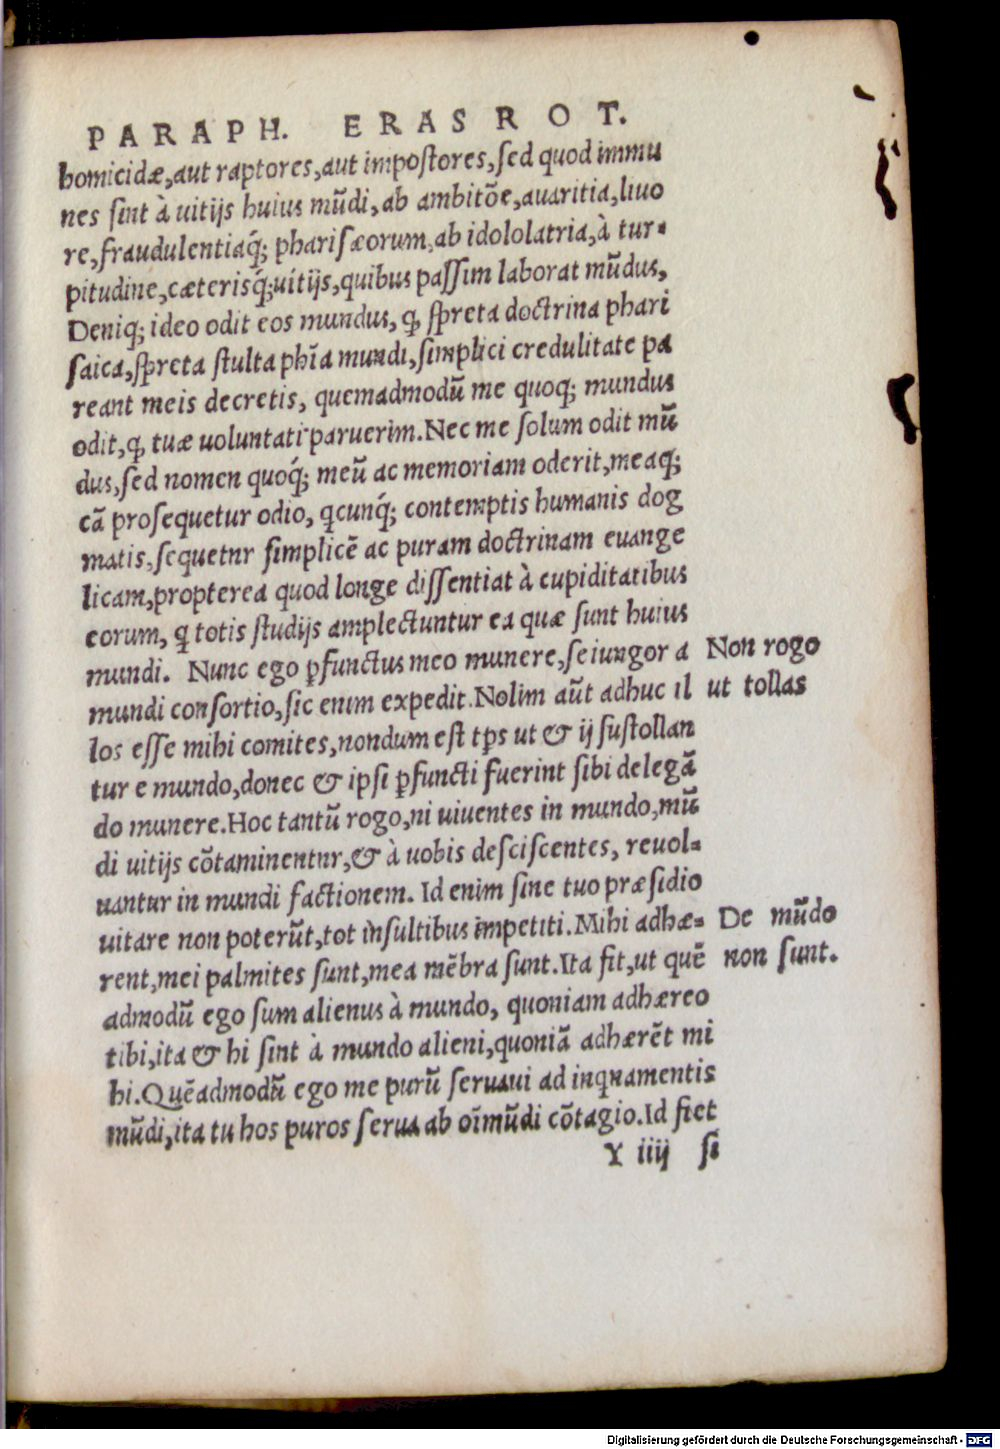 PARAPH. ERAS ROT.
homicidæ, aut raptores, aut impoſtores, ſed quod immu
nes ſint à uitijs huius mūdi, ab ambitōe, auaritia, liuo
re, fraudulentiaq́; phariſæorum, ab idololatria, à tur-
pitudine, cæterisq́; uitijs, quibus paſſim laborat mūdus,
Deniq; ideo odit eos mundus, ꝙ ſpreta doctrina phari
ſaica, ſpreta ſtulta phīa mundi, ſimplici credulitate pa
reant meis decretis, quemadmodū me quoq; mundus
odit, ꝙ tuæ uoluntati paruerim. Nec me ſolum odit mū
dus, ſed nomen quoq́; meū ac memoriam oderit, meaq;
cā proſequetur odio, qcunq́; contemptis humanis dog
matis, ſequetnr ſimplicē ac puram doctrinam euange
licam, propterea quod longe diſſentiat à cupiditatibus
eorum, q totis ſtudijs amplectuntur ea quæ ſunt huius
mundi. Nunc ego ꝑfunctus meo munere, ſeiungor a
Non rogo
mundi conſortio, ſic enim expedit. Nolim aūt adhuc il
ut tollas
los eſſe mihi comites, nondum eſt tp̄s ut & ij ſuſtollan
tur e mundo, donec & ipſi ꝑfuncti fuerint ſibi delegā
do munere. Hoc tantū rogo, ni uiuentes in mundo, mū
di uitijs cōtaminentnr, & à uobis deſciſcentes, reuol-
uantur in mundi factionem. Id enim ſine tuo præſidio
uitare non poterūt, tot inſultibus impetiti. Mihi adhæ-
De mūdo
rent, mei palmites ſunt, mea mēbra ſunt. Ita fit, ut quē
non ſunt.
admodū ego ſum alienus à mundo, quoniam adhæreo
tibi, ita & hi ſint à mundo alieni, quoniā adhærēt mi
hi. Quēadmodū ego me purū ſeruaui ad inqnamentis
mūdi, ita tu hos puros ſerua ab oī mūdi cōtagio. Id fiet
Y iiij ſi
Digitalisierung gefördert durch die Deutsche Forschungsgemeinschaft - DFG